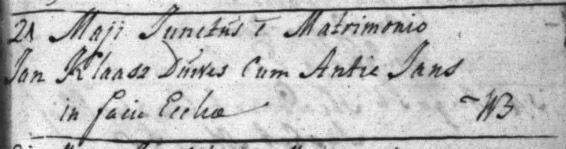 21 Maji Junctus ē Matrimonio
Jan Klaasz Duves Cum Antie Jans
in facie Ecclæ ~ WB